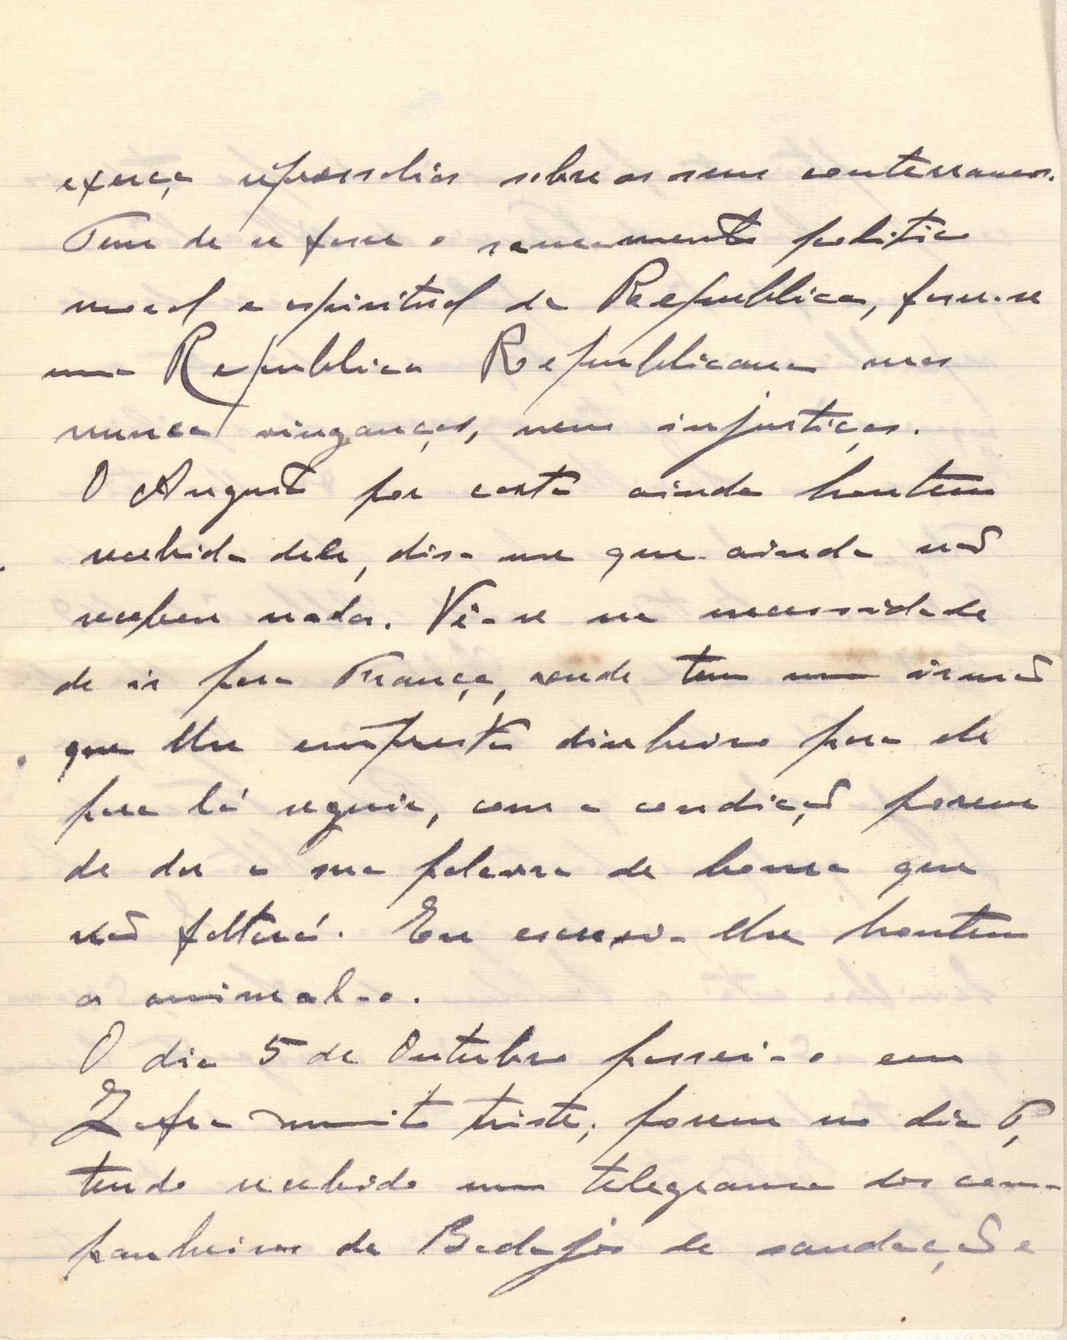 exerça represalias sobre os seus conterraneos.
Tem de se fazer o saneamento politico
moral e espiritual da Republica, fazer-se
uma Republica Republicana mas
nunca vinganças, nem injustiças.
O Augusto por carta ainda hontem
recebida dele, diz-me que ainda não
recebeu nada. Vê-se na necessidade
de ir para França, aonde tem um irmão
que lhe empresta dinheiro para ele
para lá seguir, com a condição porem
de dar a sua palavra de honra que
não faltará. Eu escrevi-lhe hontem
a animal-o.
O dia 5 de Outubro passei-o em
Zafra muito triste; porem no dia
tendo recebido um telegrama dos com-
panheiros de Badajós de saudação e